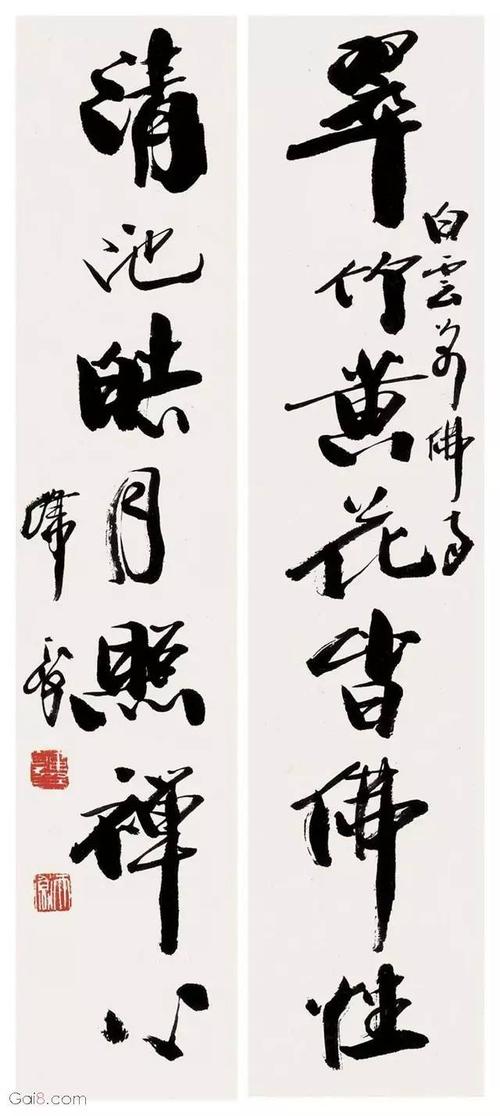 翠竹黄花皆佛性
白雲佛
清池皓月照禪心
Gai8.com